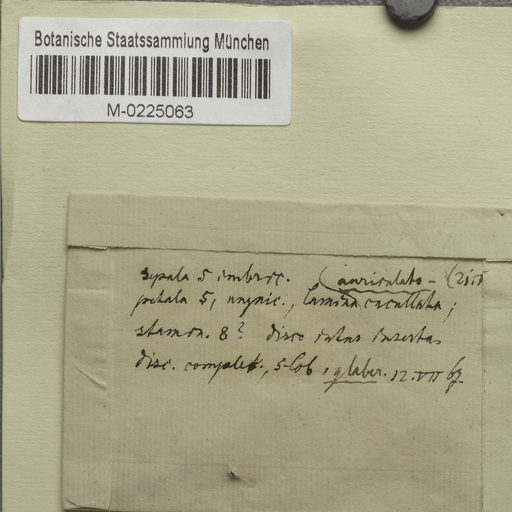 Botanische Staatssammlung München
M-0225063
sepala 5 imbric. (auriculato-
petala 5, unguic., lamina cucullata;
stamen. 8? disco intus inserta
disc. complet., 5-lob, glaber. 12.VII 67